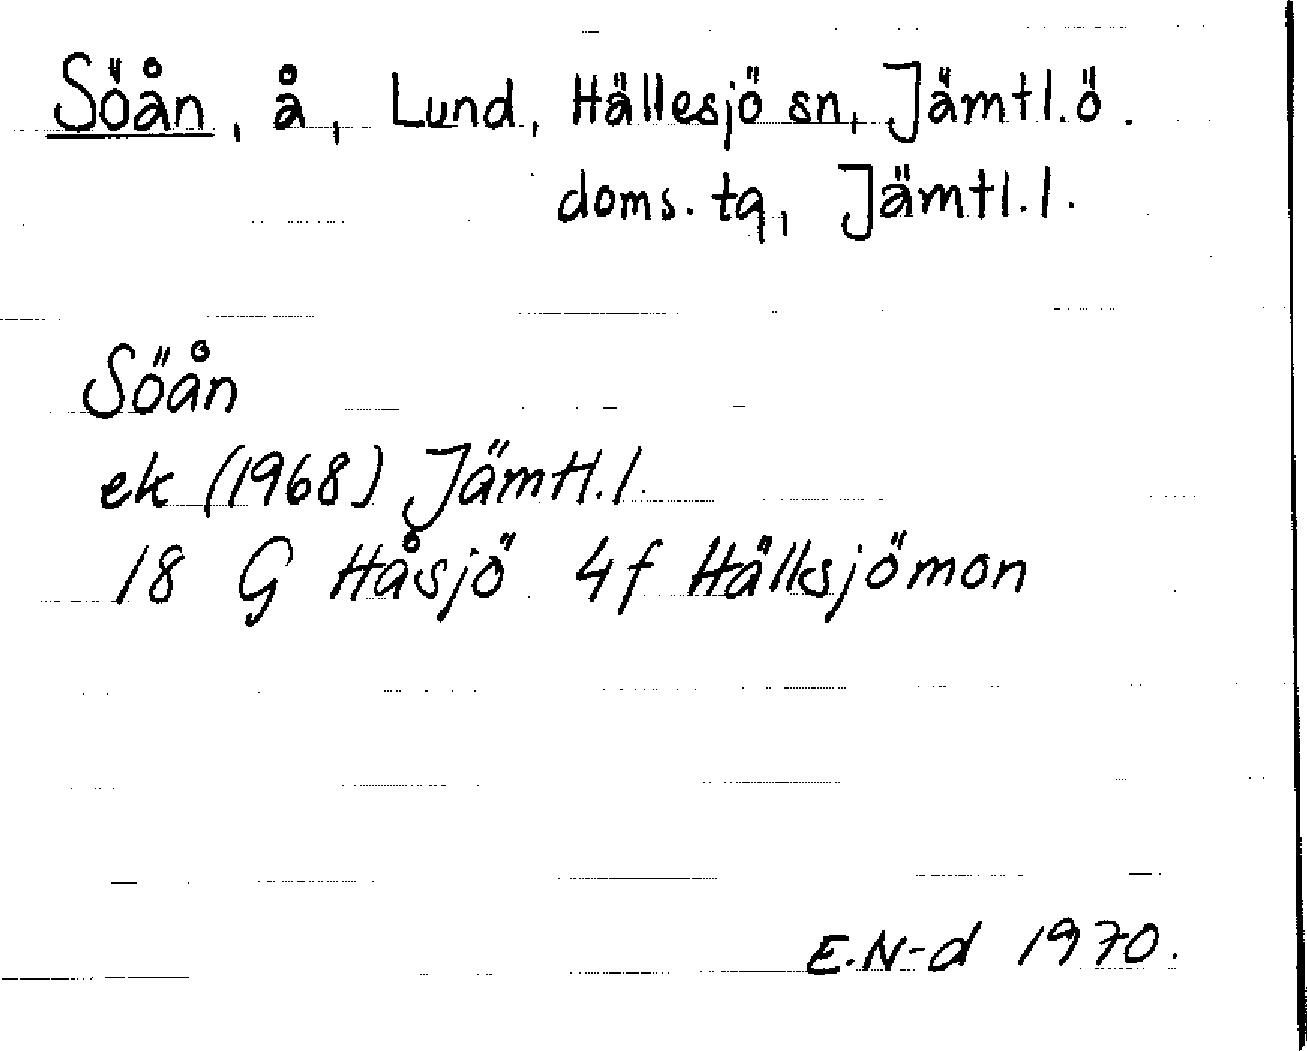 Söån, å, Lund, Hällesjö sn, Jämtl.ö.
doms. tg, Jämtl.l.
Söån
ek (1968) Jämtl.l.
18 G Håsjö 4f Hällesjömon
E.N-d 1970.